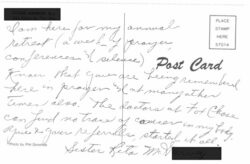 I am here for my annual
retreat (a week of prayer,
conferences & silence)
Know that you are being remembered
here in prayer & at many other
times also. The doctors at Fox Chase
can find no trace of cancer in my body.
you gave referrals, started it all.
Sister Rita M.
Post Card
PLACE
STAMP
HERE
Photo by